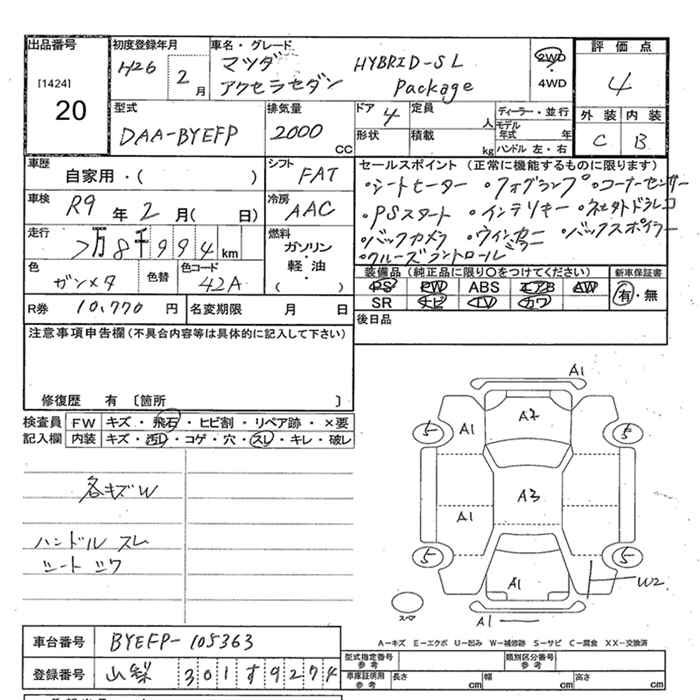 出品番号
[1424]
20
初度登録年月
H26 2月
車名・グレード
マツダ
アクセラセダン
HYBRID-SL
Package
2WD
・
4WD
評価点
4
外装 内装
C B
型式
DAA-BYEFP
排気量
2000 CC
ドア 4
定員 人
形状
積載 kg
ディーラー・並行
モデル年式 年
ハンドル 左・右
車歴
自家用・( )
シフト
FAT
車検
R9年2月( 日)
冷房
AAC
走行
7万8千994km
燃料
ガソリン
・
軽・油
( )
色
ガンメタ
色替
色コード
42A
R券 10,770円
名変期限 月 日
セールスポイント (正常に機能するものに限ります)
・シートヒーター ・フォグランプ ・コーナーセンサー
・PSスタート ・インテリキー ・社外ドラレコ
・バックカメラ ・ウインカーミラー ・バックスポイラー
・クルーズコントロール
装備品 (純正品に限り○をつけてください)
新車保証書
PS PW ABS エアB AW
SR ナビ TV カワ
有・無
後日品
注意事項申告欄(不具合内容等は具体的に記入して下さい)
修復歴 有 〔箇所 〕
検査員
記入欄
FW キズ・飛石・ヒビ割・リペア跡・×要
内装 キズ・汚レ・コゲ・穴・スレ・キレ・破レ
各キズW
ハンドル スレ
シート シワ
A1
A2
5 A1 5
A3
A1
5 A1 5
W2
スペア
A1
A-キズ E-エクボ U-凹み W-補修跡 S-サビ C-腐食 XX-交換済
車台番号 BYEFP-105363
登録番号 山梨 301す9274
型式指定番号
参考
類別区分番号
参考
車庫証明用
参考
長さ cm 幅 cm 高さ cm